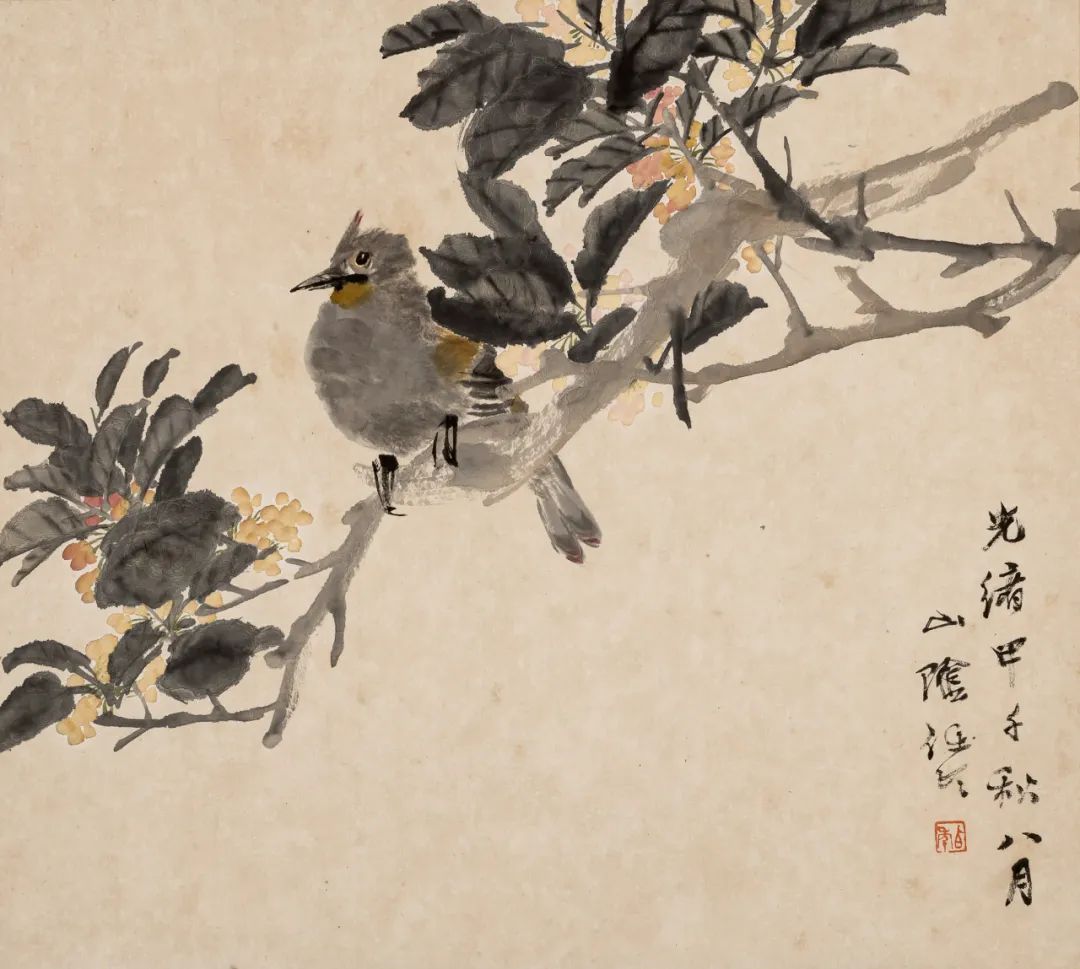 光緒甲午秋八月
山陰任頤